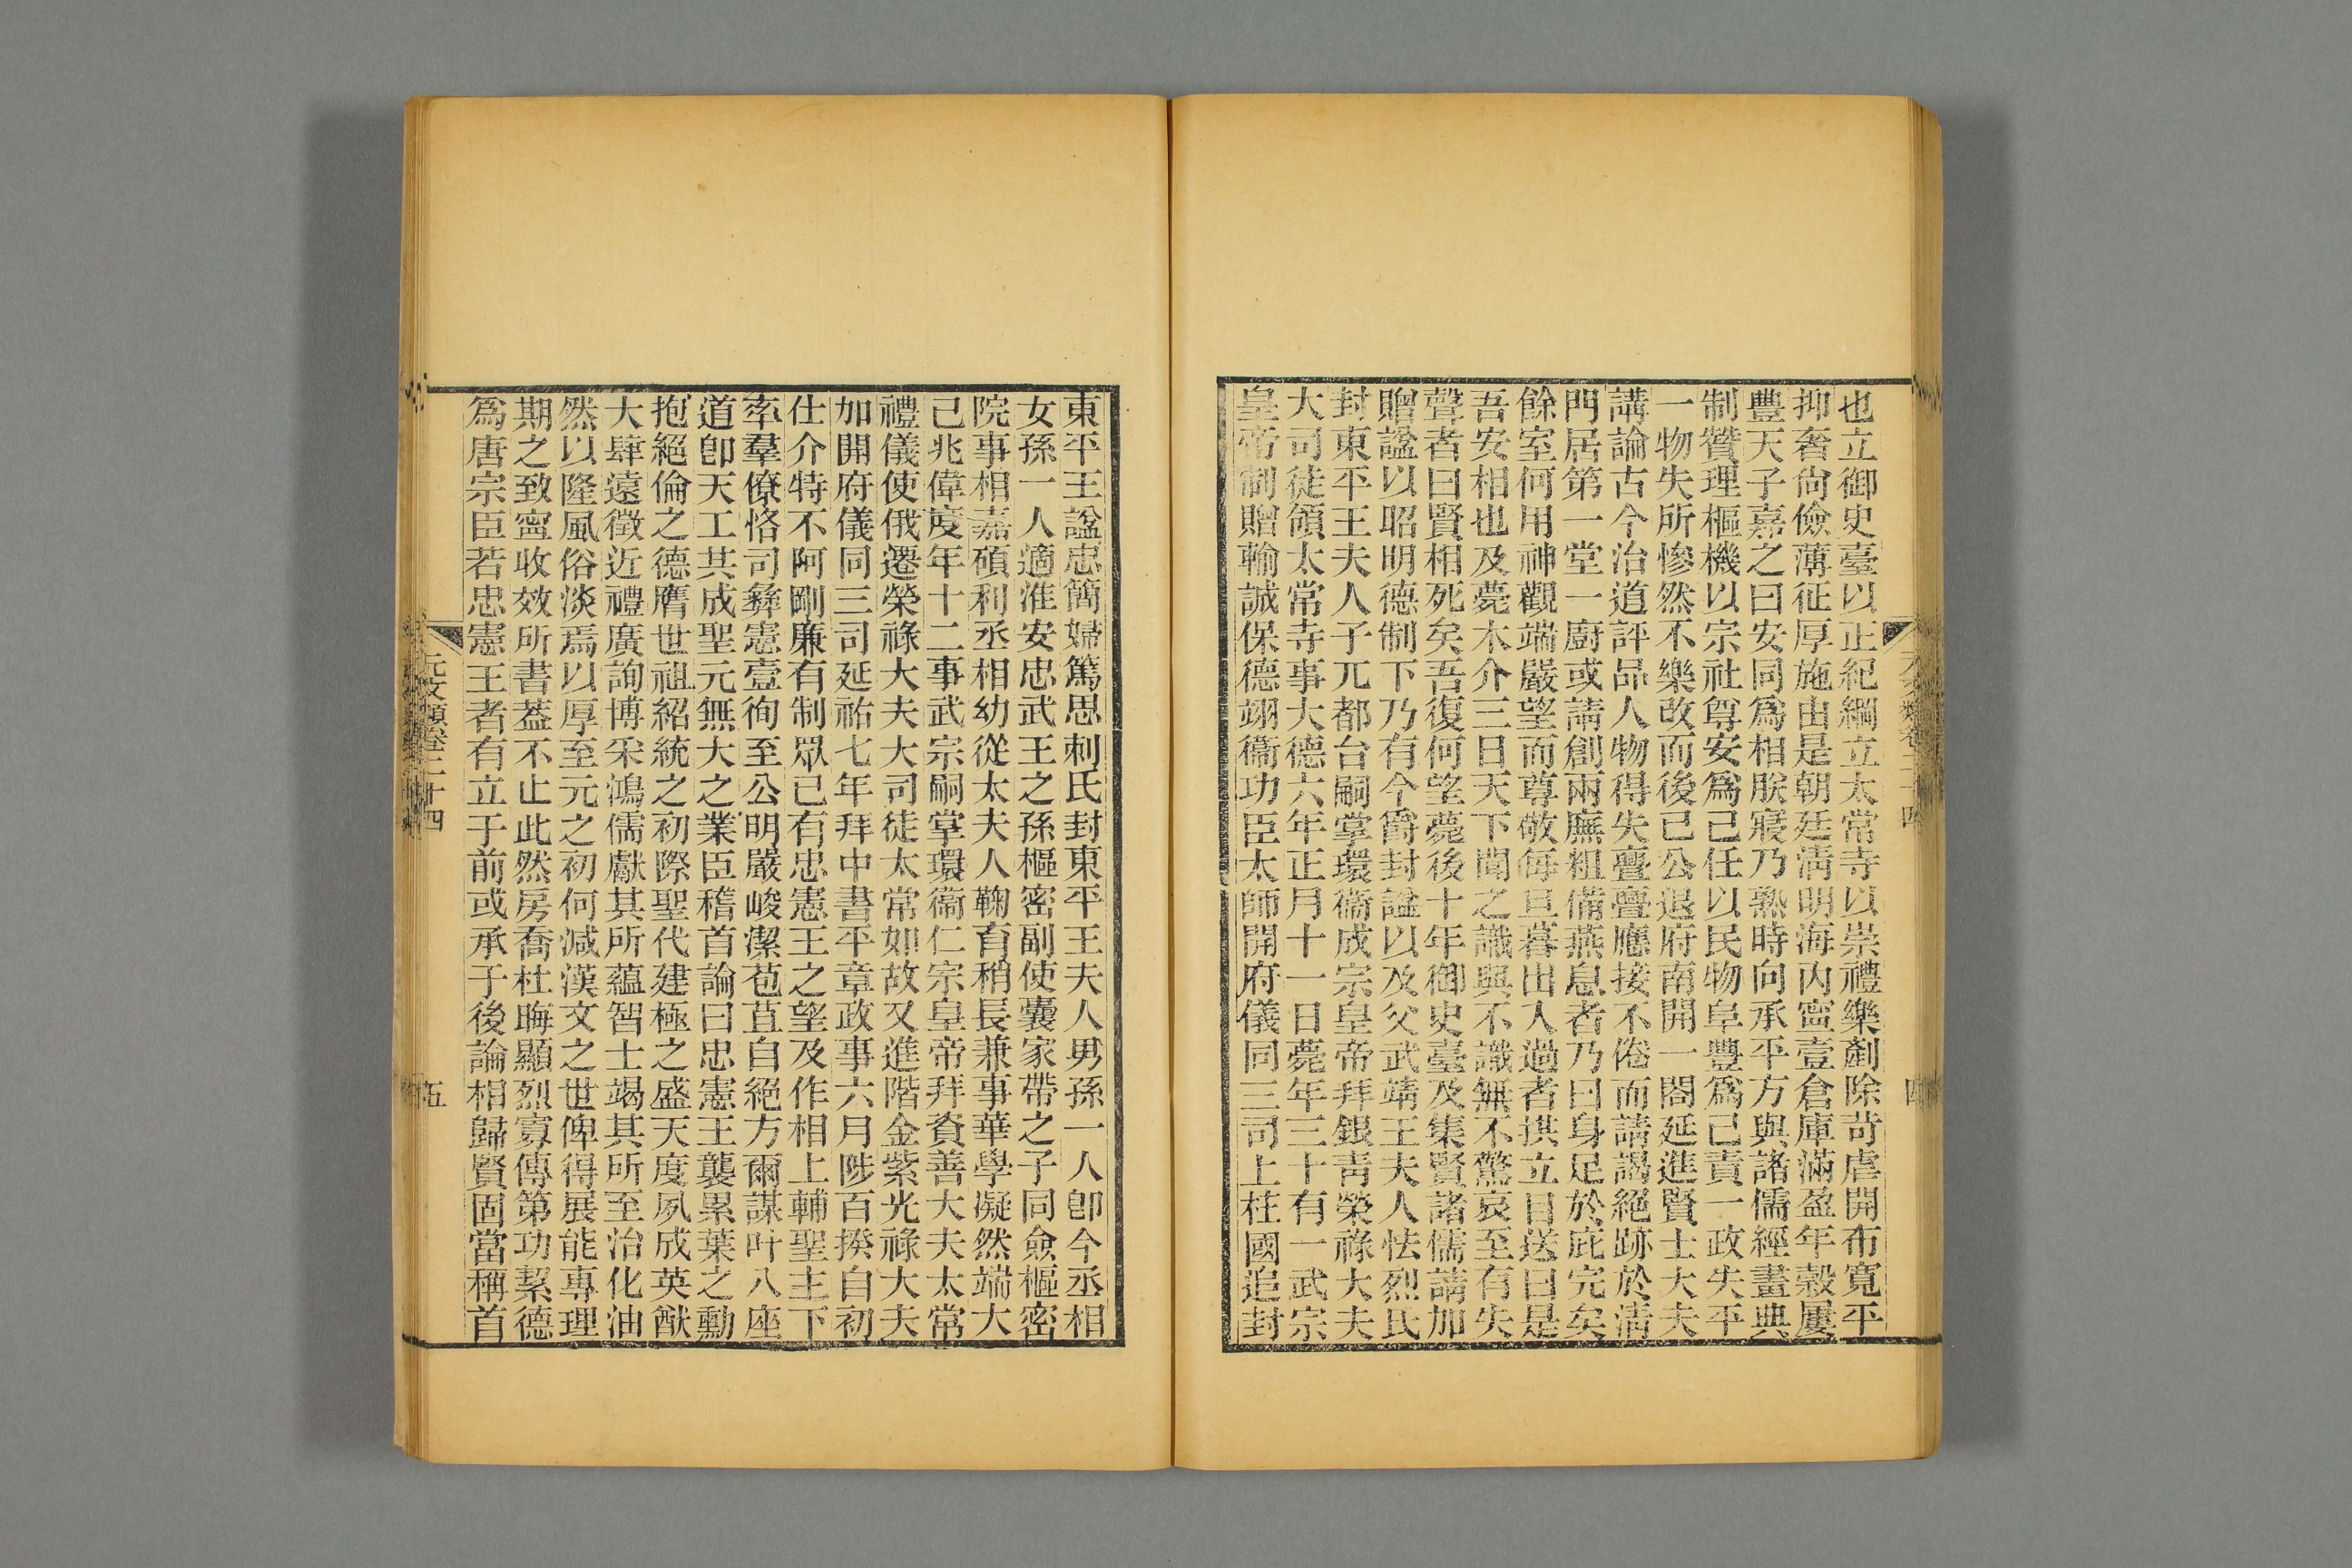 也立御史臺以正紀綱立太常寺以崇禮樂剷除苛虐開布寬平
抑奢尙儉薄征厚施由是朝廷淸明海內寧壹倉庫滿盈年穀屢
豐天子嘉之曰安同爲相朕寢乃熟時向承平方與諸儒經畫典
制贊理樞機以宗社尊安爲己任以民物阜豐爲己責一政失平
一物失所慘然不樂改而後已公退府南開一閤延進賢士大夫
講論古今治道評品人物得失亹亹應接不倦而請謁絕跡於淸
門居第一堂一廚或請創兩廡粗備燕息者乃曰身足於庇完矣
餘室何用神觀端嚴望而尊敬每旦暮出入過者拱立目送曰是
吾安相也及薨木介三日天下聞之識與不識無不驚哀至有失
聲者曰賢相死矣吾復何望薨後十年御史臺及集賢諸儒請加
贈諡以昭明德制下乃有今爵封諡以及父武靖王夫人怯烈氏
封東平王夫人子兀都台嗣掌環衞成宗皇帝拜銀靑榮祿大夫
大司徒領太常寺事大德六年正月十一日薨年三十有一武宗
皇帝制贈輸誠保德翊衞功臣太師開府儀同三司上柱國追封
東平王諡忠簡婦篤思刺氏封東平王夫人男孫一人卽今丞相
女孫一人適淮安忠武王之孫樞密副使囊家帶之子同僉樞密
院事相嘉碩利丞相幼從太夫人鞠育稍長兼事華學凝然端大
己兆偉度年十二事武宗嗣掌環衞仁宗皇帝拜資善大夫太常
禮儀使俄遷榮祿大夫大司徒太常如故又進階金紫光祿大夫
加開府儀同三司延祐七年拜中書平章政事六月陟百揆自初
仕介特不阿剛廉有制眾已有忠憲王之望及作相上輔聖主下
率羣僚恪司彝憲壹徇至公明嚴峻潔苞苴自絕方爾謀叶八座
道卽天工共成聖元無大之業臣稽首論曰忠憲王襲累葉之勳
抱絕倫之德膺世祖紹統之初際聖代建極之盛天度夙成英猷
大肆遠徵近禮廣詢博采鴻儒獻其所蘊智士竭其所至治化油
然以隆風俗淡焉以厚至元之初何減漢文之世俾得展能專理
期之致寧收效所書葢不止此然房喬杜晦顯烈寡傳第功絜德
爲唐宗臣若忠憲王者有立于前或承于後論相歸賢固當稱首
元文類卷二十四
五
四